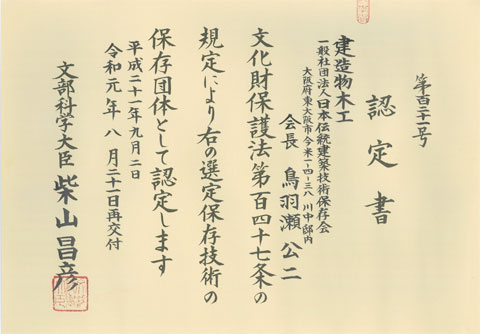 第百二十一号
認定書
建造物木工
一般社団法人日本伝統建築技術保存会
大阪府東大阪市今米一-四-三八 川中邸内
会長 鳥羽瀬 公二
文化財保護法第百四十七条の
規定により右の選定保存技術の
保存団体として認定します
平成二十一年九月二日
令和元年八月二十一日再交付
文部科学大臣 柴山昌彦